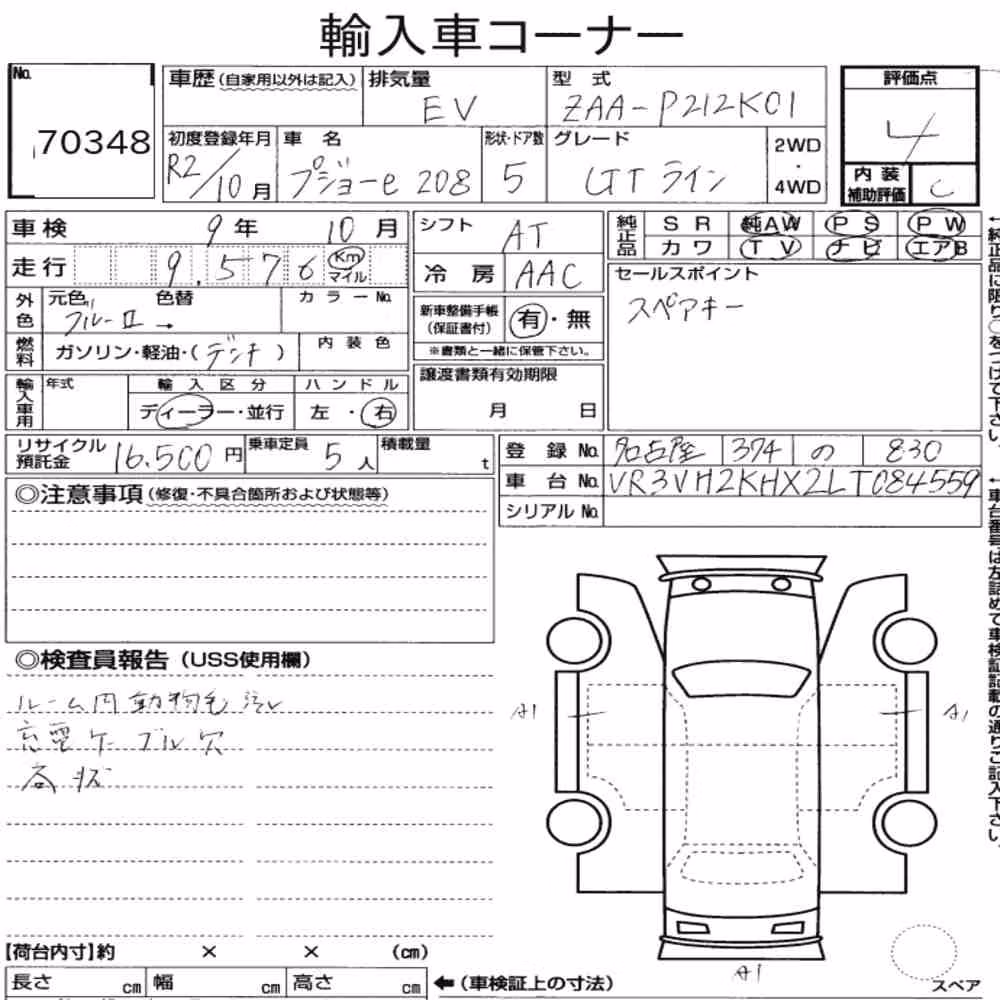 輸入車コーナー
No. 70348
車歴(自家用以外は記入) 排気量 EV 型式 ZAA-P212K01
評価点 4
初度登録年月 R2/10月 車名 プジョーe208 形状・ドア数 5 グレード GTライン 2WD・4WD
内装補助評価 C
車検 9年 10月
シフト AT
純正品 SR 純AW PS PW
カワ TV ナビ エアB
走行 9,576 Km マイル
冷房 AAC
セールスポイント
スペアキー
外色 元色 色替 カラーNo.
ブルーII →
新車整備手帳(保証書付) 有・無
※書類と一緒に保管下さい。
燃料 ガソリン・軽油・(デンキ) 内装色
譲渡書類有効期限
月 日
輸入車用 年式 輸入区分 ハンドル
ディーラー・並行 左・右
リサイクル預託金 16,500円 乗車定員 5人 積載量 t
登録No. 名古屋 374 の 830
車台No. VR3VH2KHX2LT084559
シリアルNo.
◎注意事項(修復・不具合箇所および状態等)
◎検査員報告(USS使用欄)
ルーム内動物毛汚レ
充電ケーブル欠
A1
A1
A1
スペア
【荷台内寸】約 × × (cm)
長さ cm 幅 cm 高さ cm ←(車検証上の寸法)
←純正品に限り○をつけて下さい。
←車台番号は左詰めで車検証記載の通りご記入下さい。